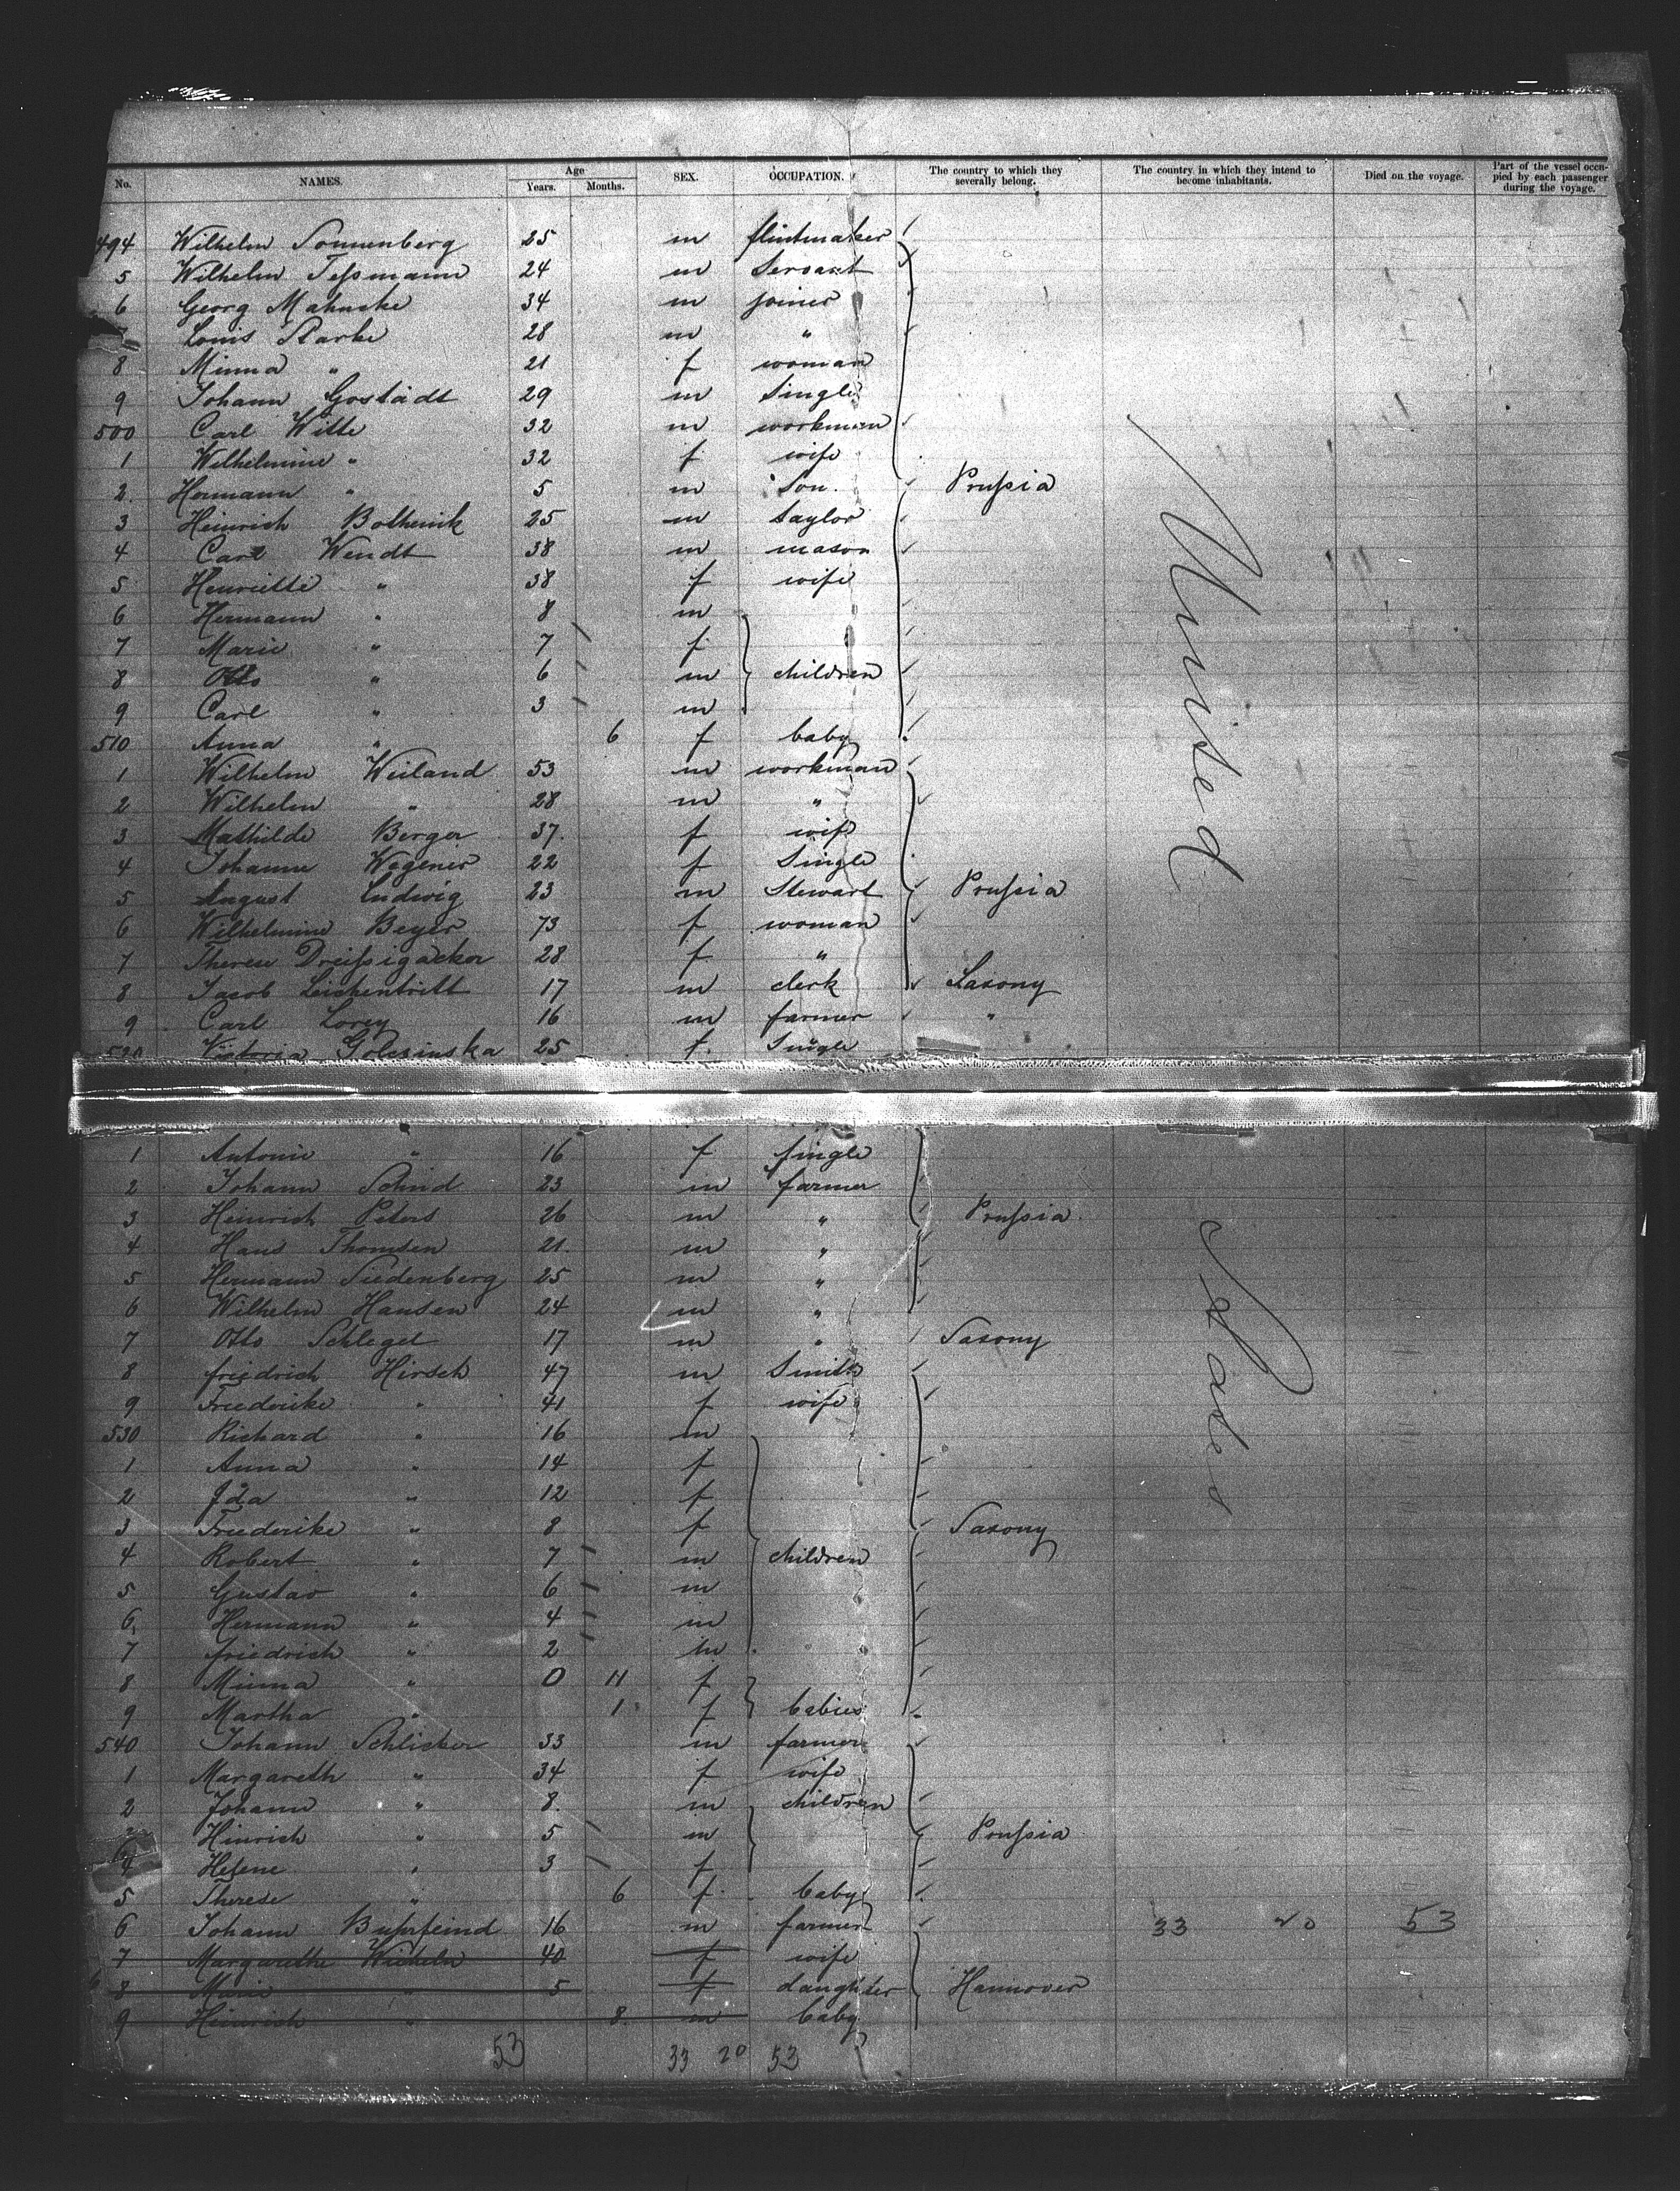 No. NAMES. Age Years. Months. SEX. OCCUPATION. The country to which they severally belong. The country in which they intend to become inhabitants. Died on the voyage. Part of the vessel occupied by each passenger during the voyage.
494 Wilhelm Sonnenberg 25 m flintmaker
5 Wilhelm Teſsmann 24 m Servant
6 Georg Mahncke 34 m joiner
Louis Starke 28 m "
8 Minna " 21 f woman
9 Johann Gostädt 29 m Single
500 Carl Witte 32 m workman
1 Wilhelmine " 32 f wife
2 Hermann " 5 m Son. Pruſsia
3 Heinrich Bothenik 25 m taylor
4 Carl Wendt 38 m mason
5 Henriette " 38 f wife
6 Hermann " 8 m
7 Marie " 7 f
8 Otto " 6 m children
9 Carl " 3 m
510 Anna " 6 f baby
1 Wilhelm Weiland 53 m workman
2 Wilhelm " 28 m "
3 Mathilde Berger 37 f wife
4 Johanne Wegener 22 f Single
5 August Ludwig 23 m Stewart Pruſsia
6 Wilhelmine Beyer 73 f woman
7 Therese Dreiſsigacker 28 f "
8 Jacob Leichentritt 17 m clerk Saxony
9 Carl Lorey 16 m farmer "
520 Victoria Golesinska 25 f Single
1 Antonie " 16 f single
2 Johann Schind 23 m farmer
3 Heinrich Peters 26 m " Pruſsia
4 Hans Thomsen 21 m "
5 Hermann Siedenberg 25 m "
6 Wilhelm Hansen 24 m "
7 Otto Schlegel 17 m " Saxony
8 friedrich Hirsch 47 m Smith
9 Friederike " 41 f wife
530 Richard " 16 m
1 Anna " 14 f
2 Ida " 12 f
3 Friederike " 8 f Saxony
4 Robert " 7 m children
5 Gustav " 6 m
6 Hermann " 4 m
7 friedrich " 2 m
8 Minna " 0 11 f
9 Martha " 1 f babies
540 Johann Schlicker 33 m farmer
1 Margareth " 34 f wife
2 Johann " 8 m children
3 Hinrich " 5 m Pruſsia
4 Helene " 3 f
5 Therese " 6 f baby
6 Johann Buhrfeind 16 m farmer 33 20 53
7 Margarethe Wicheln 40 f wife
8 Marie " 5 f daughter Hannover
9 Heinrich " 8 m baby
53 33 20 53
United
States